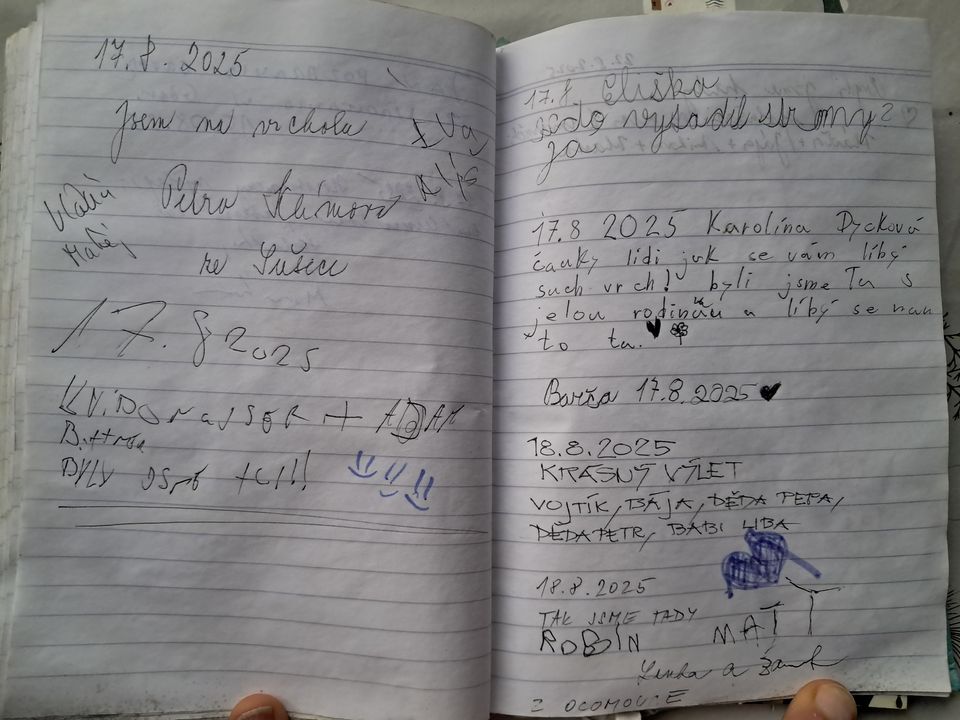 17.8. 2025
Jsem na vrcholu
Eva
Alís
Vláďa
Matěj
Petra
ze Sušice
17.8 2025
+ ADAM
BYLY JSME TU!!
17.8 Eliška
kdo vysadil stromy?
ja
17.8 2025 Karolína Dycková
čauky lidi jak se vám líbý
such vrch! byli jsme Tu s
jelou rodinků a líbý se nam
to tu.
Barča 17.8.2025
18.8.2025
KRÁSNÝ VÝLET
VOJTÍK, BÁJA, DĚDA PEPA,
DĚDA PETR, BABI LIBA
18.8.2025
TAK JSME TADY
ROBIN MAT
Lenka a
Z OLOMOUCE